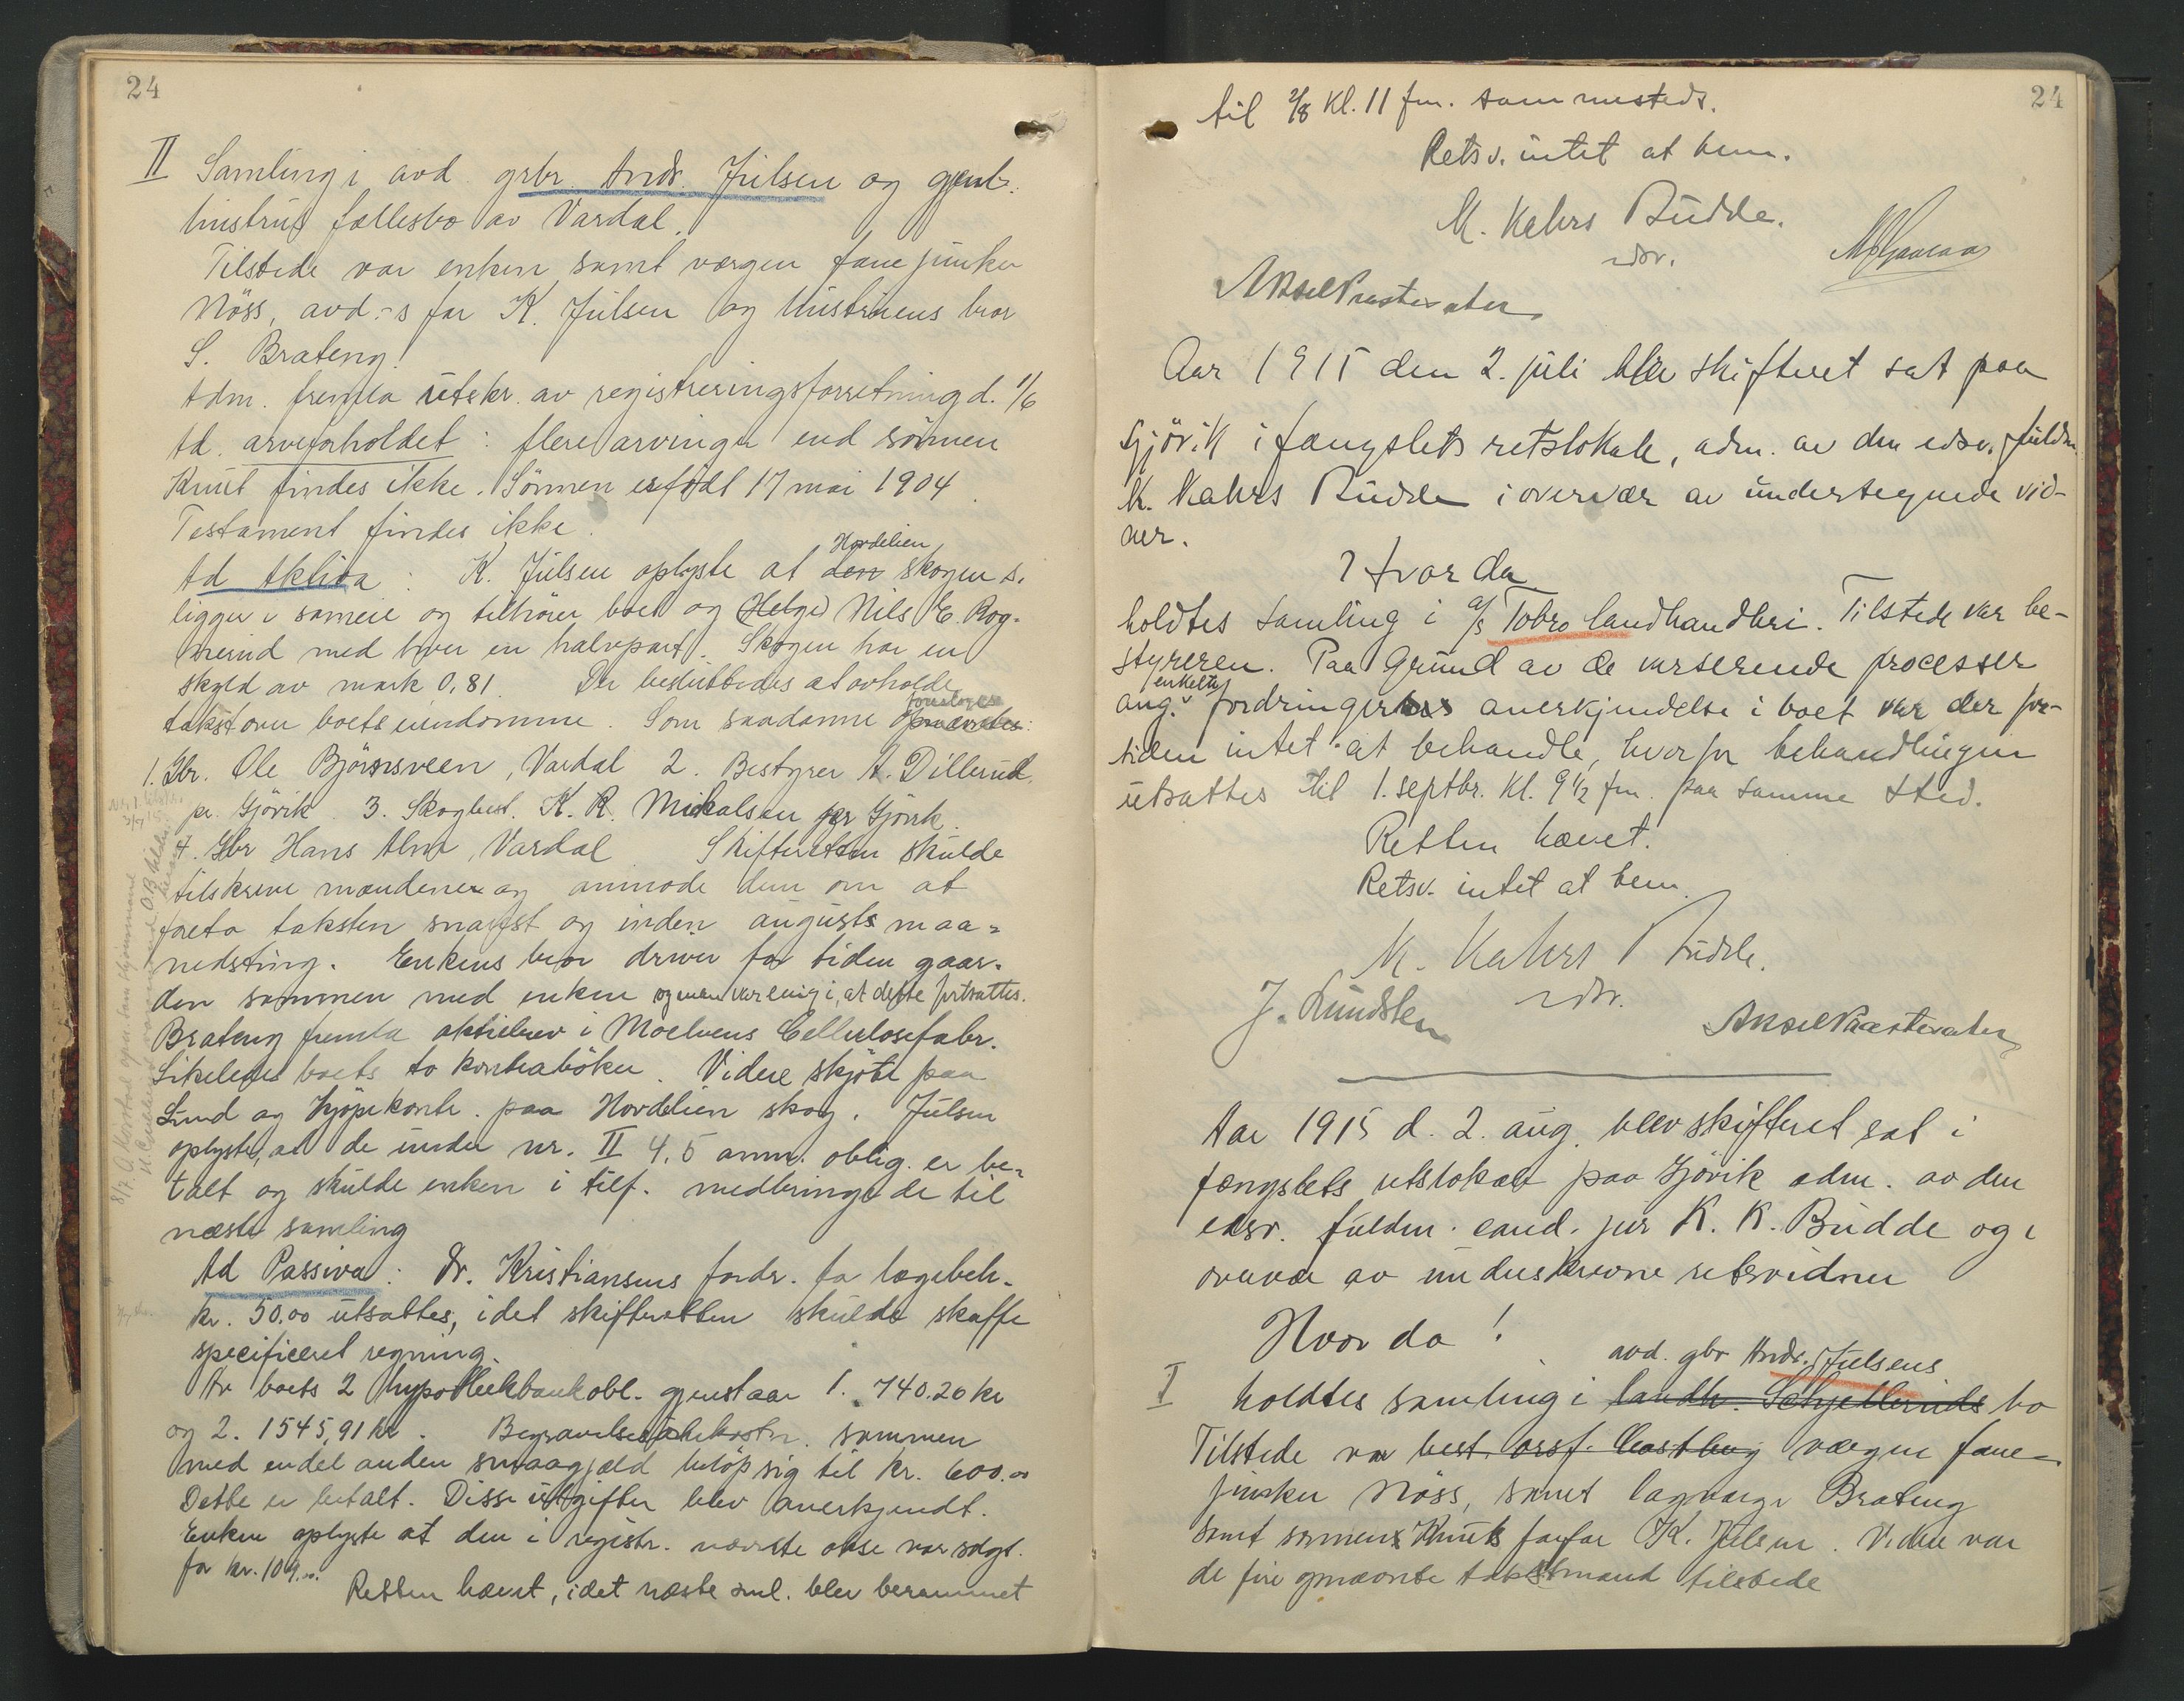 24
II Samling i avd. grbr Andr. Julsen og gjenl.
hustrus fællesbo av Vardal.
Tilstede var enken samt vergen fanejunker
Nöss, avd.-s far K. Julsen og hustruens bror
S. Brateng.
Adm. fremla utskr. av registreringsforretning d. 1/6
Ad. arveforholdet: flere arvinger end sönnen
Knut findes ikke. Sönnen er födt 17 mai 1904.
Testament findes ikke.
Ad Aktiva: K. Julsen oplyste at den Hordelien skogen s.
ligger i sameie og tilhörer boet og (Helge) Nils E. Rog-
nerud med hver en halvpart. Skogen har en
skyld av mark 0,81. Der besluttedes at avholde
takst over boets eiendomme. Som saadanne opnævntes foreslogs:
1. Gbr. Ole Björnsveen, Vardal 2. Bestyrer A. Dillerud
pr. Gjövik 3. Skogbest. K. R. Mikalsen pr Gjövik.
4. Gbr Hans Alm, Vardal. Skifteretten skulde
tilskrive mændene og anmode dem om at
foreta taksten snarest og inden augusts maa-
nedsting. Enkens bror driver for tiden gaar-
den sammen med enken og man var enig i, at dette fortsattes.
Brateng fremla aktiebrev i Moelvens Cellulosefabr.
Likeledes boets to kontraböker. Videre skjöte paa
Lund og kjöpekontr. paa Hordelien skog. Julsen
oplyste, at de under nr. II 4, 5 anm. oblig. er be-
talt og skulde enken i tilf. medbringe de til
næste samling
Ad Passiva: Dr. Kristiansens fordr. for lægebeh.
kr. 50,00 utsattes, idet skifteretten skulde skaffe
specificeret regning.
Av boets 2 hypothekbankobl. gjenstaar 1. 740.26 kr
og 2. 1545,91 kr. Begravelsesomkostn. sammen
med endel anden smaagjæld belöp sig til kr. 600.00
Dette er betalt. Disse utgifter blev anerkjendt.
Enken oplyste at den i registr. nævnte okse var solgt
for kr. 109.00.
Retten hævet, idet næste saml. blev berammet
24
til 2/8 kl. 11 fm. sammesteds.
Retsv. intet at bem.
K. Kahrs Budde.
edsv.
Aksel Prestesater
Aar 1915 den 2. juli blev skifteret sat paa
Gjövik i fængslets retslokale, adm. av den edsv. fuldm.
K. Kahrs Budde i overvær av undertegnede vid-
ner.
Hvor da
holdtes samling i a/s Tobro landhandleri. Tilstede var be-
styreren. Paa grund av de verserende processer
ang. enkelte fordringers anerkjendelse i boet var der for-
tiden intet at behandle, hvorfor behandlingen
utsattes til 1. septbr. kl. 9 1/2 fm. paa samme sted.
Retten hævet.
Retsv. intet at bem.
K. Kahrs Budde.
edsv.
J. Lundsten
Aksel Præstesater
Aar 1915 d. 2. aug. blev skifteret sat i
fængslets retslokale paa Gjövik adm. av den
edsv. fuldm. cand. jur K. K. Budde og i
overvær av underskrevne retsvidner
Hvor da!
avd. gbr Andr. Julsens
I holdtes samling i landh. Schjelleruds bo
Tilstede var best. orsf. Castberg værgen fane-
junker Nöss, samt lagværge Brateng
samt sönnens Knuts farfar K. Julsen. Videre var
de fire opnævnte takstmænd tilstede